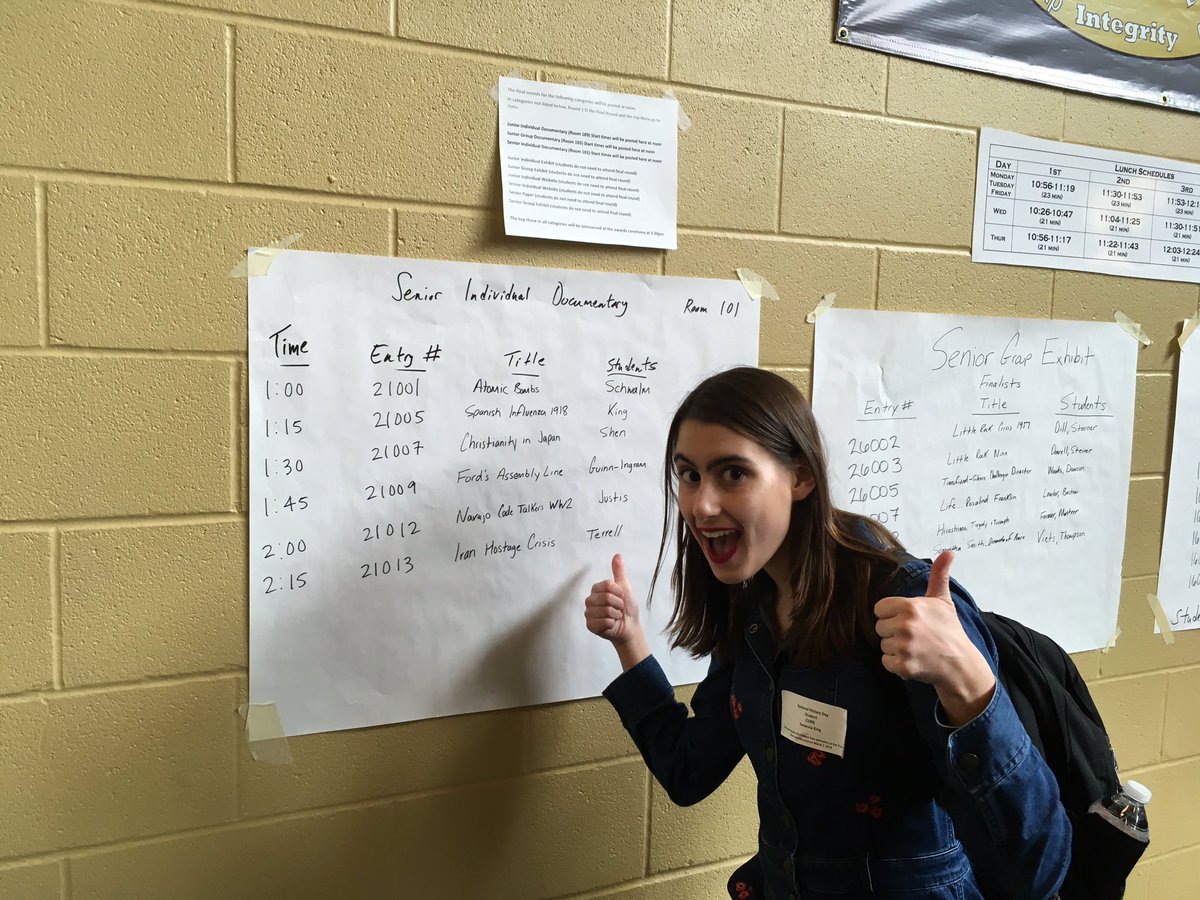 Integrity
The final rounds for the following categories will be posted at noon
In categories not listed below, Round 1 is the Final Round and the top three go to
state.
Junior Individual Documentary (Room 109) Start times will be posted here at noon
Junior Group Documentary (Room 105) Start times will be posted here at noon
Senior Individual Documentary (Room 101) Start times will be posted here at noon
Junior Individual Exhibit (students do not need to attend final round)
Junior Group Exhibit (students do not need to attend final round)
Junior Individual Website (students do not need to attend final round)
Senior Individual Website (students do not need to attend final round)
Senior Paper (students do not need to attend final round)
Senior Group Exhibit (students do not need to attend final round)
The top three in all categories will be announced at the awards ceremony at 3:30pm.
DAY 1ST LUNCH SCHEDULES 2ND 3RD
MONDAY
TUESDAY
FRIDAY
10:56-11:19 11:30-11:53 11:53-12:1
(23 MIN) (23 MIN)
WED 10:26-10:47 11:04-11:25 11:30-11:51
(21 MIN) (21 MIN) (21 MIN)
THUR 10:56-11:17 11:22-11:43 12:03-12:24
(21 MIN) (21 MIN) (21 MIN)
Senior Individual Documentary Room 101
Time Entry # Title Students
1:00 21001 Atomic Bombs Schwalm
1:15 21005 Spanish Influenza 1918 King
1:30 21007 Christianity in Japan Shen
1:45 21009 Ford's Assembly Line Guinn-Ingram
2:00 21012 Navajo Code Talkers WW2 Justis
2:15 21013 Iran Hostage Crisis Terrell
Senior Group Exhibit
Finalists
Entry # Title Students
26002 Little Rock Crisis 1957 Dill, Starner
26003 Little Rock Nine
26005 Challenger Disaster Dawson
07 Life... Rosalind Franklin
Hiroshima Tragedy
Samantha Smith: Viets, Thompson
National History Day
Student
21005
Susanna King